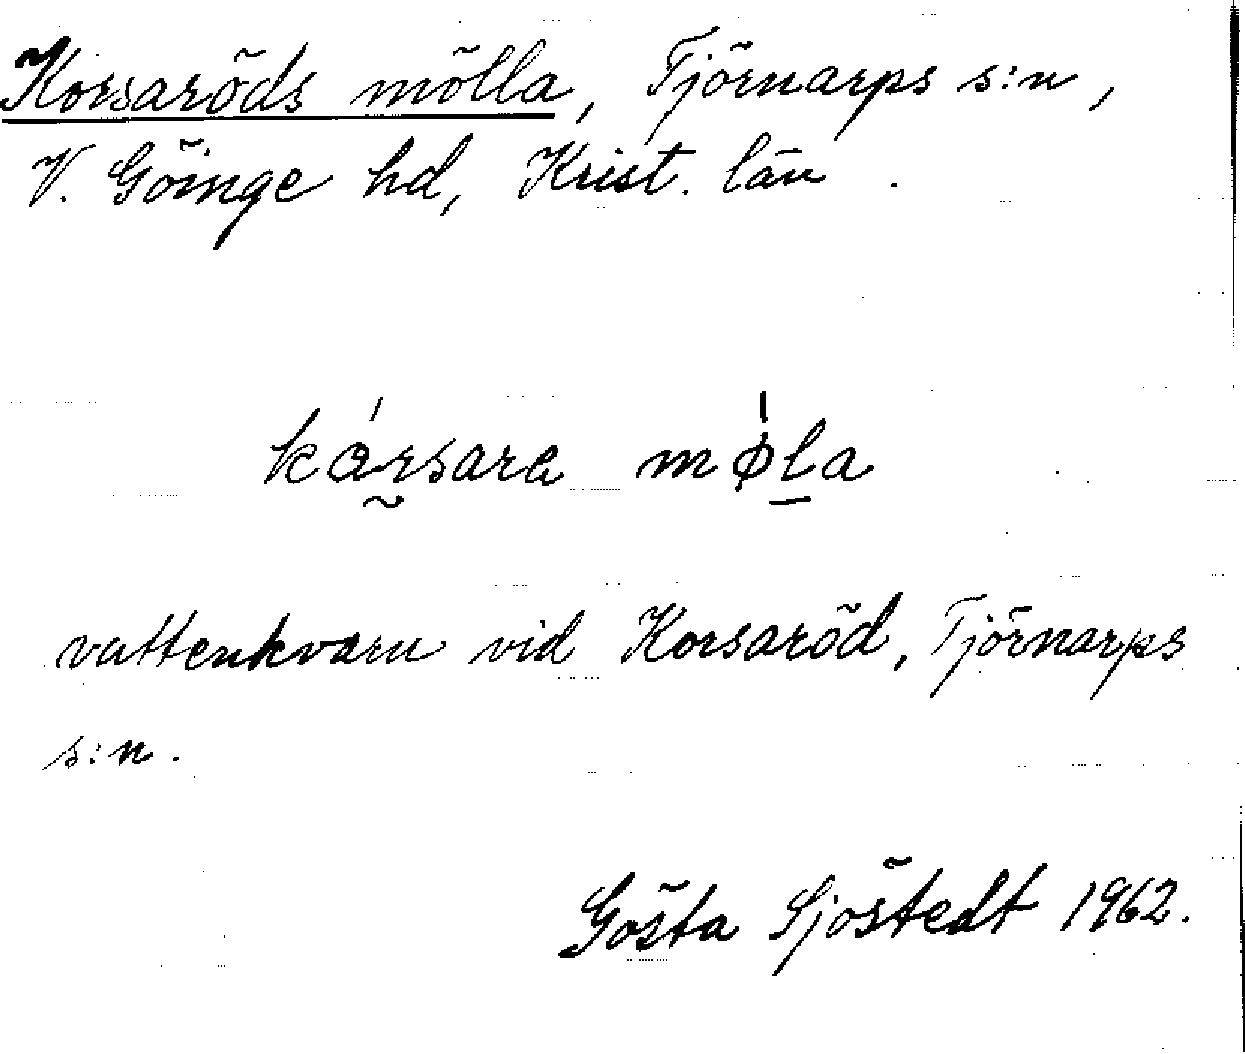 Korsaröds mölla, Tjörnarps s:n,
V. Göinge hd, Krist. län.
kársara mø̍la
vattenkvarn vid Korsaröd, Tjörnarps
s:n.
Gösta Sjöstedt 1962.